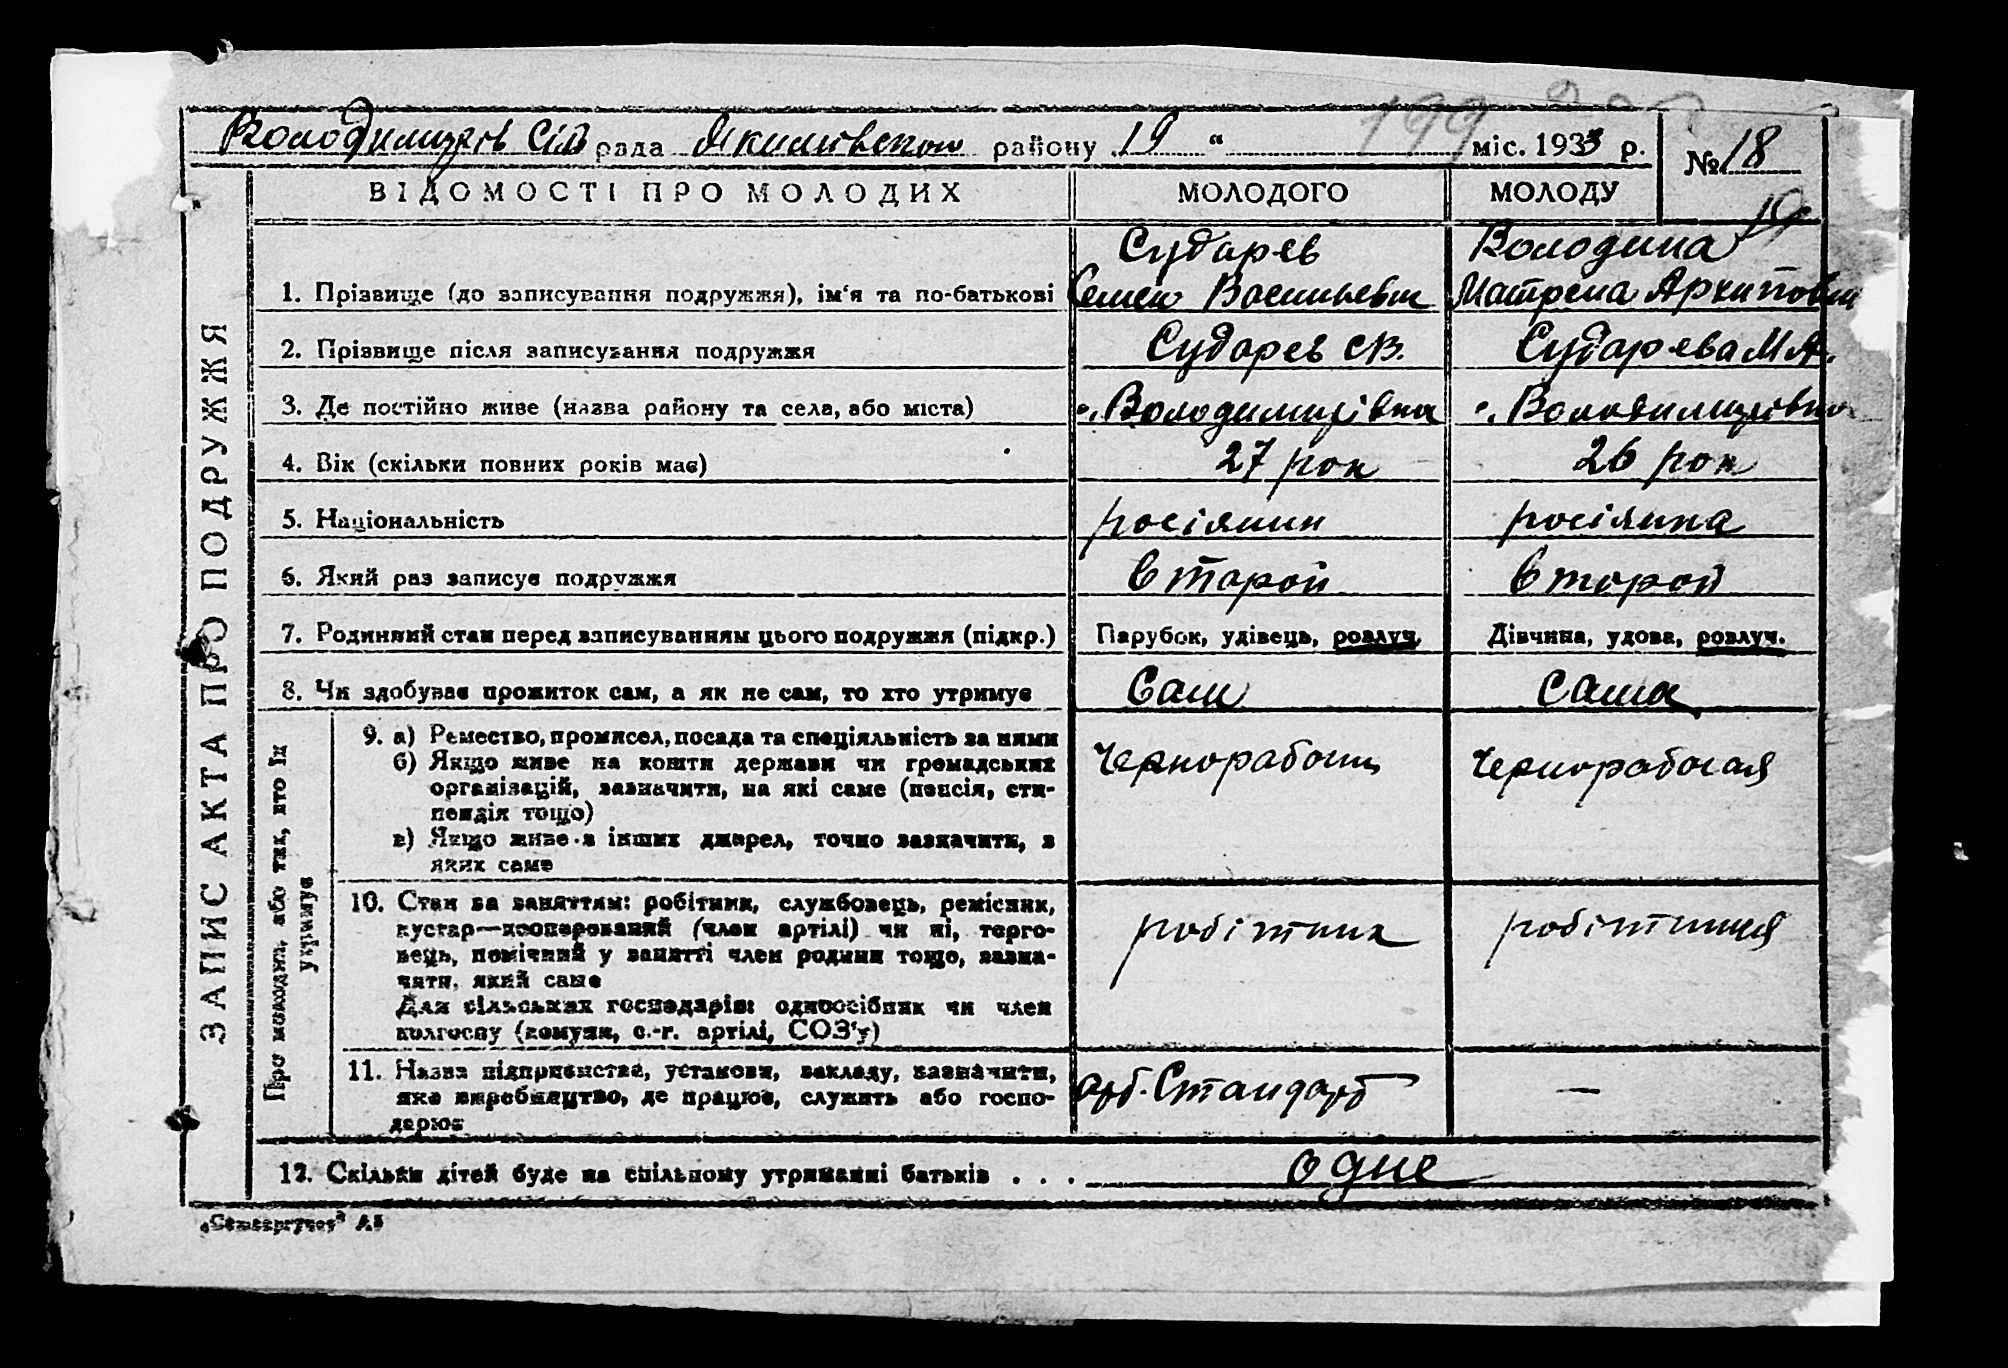 Володимирів Сіль рада Якимівского району 19 " міс. 1933 р. № 18
199
19
ВІДОМОСТІ ПРО МОЛОДИХ МОЛОДОГО МОЛОДУ
ЗАПИС АКТА ПРО ПОДРУЖЖЯ
Сударев Володина
1. Прізвище (до записування подружжя), ім'я та по-батькові Семен Васильевич Матрена Архиповна
2. Прізвище після записування подружжя Сударев С.В. Сударева М.А.
3. Де постійно живе (назва району та села, або міста) с. Володимирівка с. Володимирівка
4. Вік (скільки повних років має) 27 рок 26 рок
5. Національність росіянин росіянка
6. Який раз записує подружжя второй второй
7. Родинний стан перед записуванням цього подружжя (підкр.) Парубок, удівець, розлуч. Дівчина, удова, розлуч.
8. Чи здобуває прожиток сам, а як не сам, то хто утримує Сам Сама
Про молодих, або тих, хто їх
утримує
9. а) Ремество, промисел, посада та спеціяльність за ними Чернорабочий Чернорабочая
б) Якщо живе на кошти держави чи громадських
організацій, зазначити, на які саме (пенсія, сти-
пендія тощо)
в) Якщо живе з інших джерел, точно зазначити, з
яких саме
10. Стан за заняттям: робітник, службовець, ремісник, робітник робітниця
кустар—кооперований (член артілі) чи ні, торго-
вець, помічний у занятті член родини тощо, зазна-
чити, який саме
Для сільських господарів: одноосібник чи член
колгоспу (комуни, с.-г. артілі, СОЗ'у)
11. Назва підприємства, установи, закладу, зазначити, Стандарт —
яке виробництво, де працює, служить або госпо-
дарює
12. Скільки дітей буде на спільному утриманні батьків . . . одне